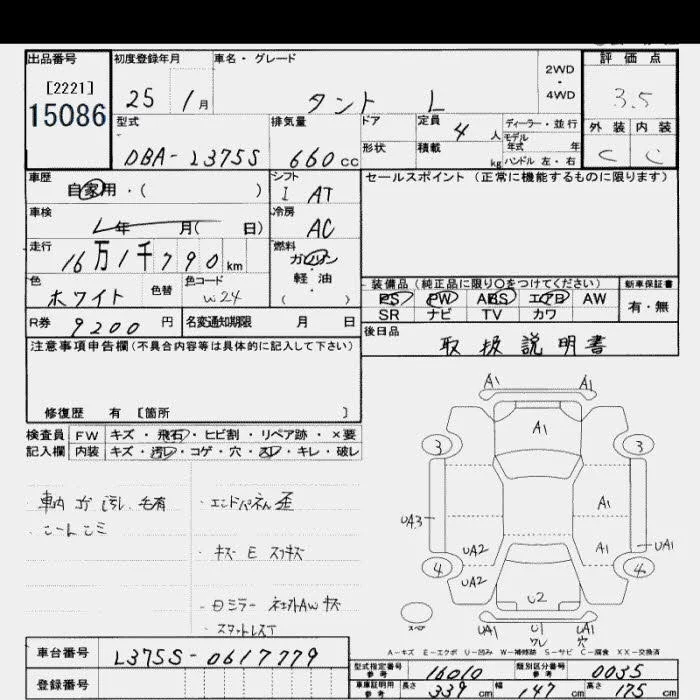 出品番号
[2221]
15086
初度登録年月
25 1月
車名・グレード
タント L
2WD
・
4WD
評価点
3.5
外装 内装
C C
型式
DBA-L375S
排気量
660cc
ドア
形状
定員
4人
積載
kg
ディーラー・並行
モデル
年式 年
ハンドル 左・右
車歴
自家用・( )
シフト
I AT
セールスポイント (正常に機能するものに限ります)
車検
年 月( 日)
冷房
AC
走行
16万1千790km
燃料
ガソリン
・
軽油
( )
色
ホワイト
色替
色コード
W24
装備品 (純正品に限り〇をつけてください)
PS PW ABS エアB AW
SR ナビ TV カワ
新車保証書
有・無
R券
9200円
名変通知期限 月 日
後日品
取扱説明書
注意事項申告欄(不具合内容等は具体的に記入して下さい)
修復歴 有 [箇所 ]
検査員
記入欄
FW キズ・飛石・ヒビ割・リペア跡・×要
内装 キズ・汚レ・コゲ・穴・スレ・キレ・破レ
・エンドパネル歪
・キズ E スリキズ
A1 A1
A1
3 3
UA3
A1
UA2 A1 UA1
4 4
UA2
U2
スペア
UA1 U1 UA1
ワレ 穴
A-キズ E-エクボ U-凹み W-補修跡 S-サビ C-腐食 XX-交換済
車台番号
L375S-0617779
登録番号
型式指定番号
参考
16010
類別区分番号
参考
0035
車庫証明用
参考
長さ 339cm 幅 147cm 高さ 175cm